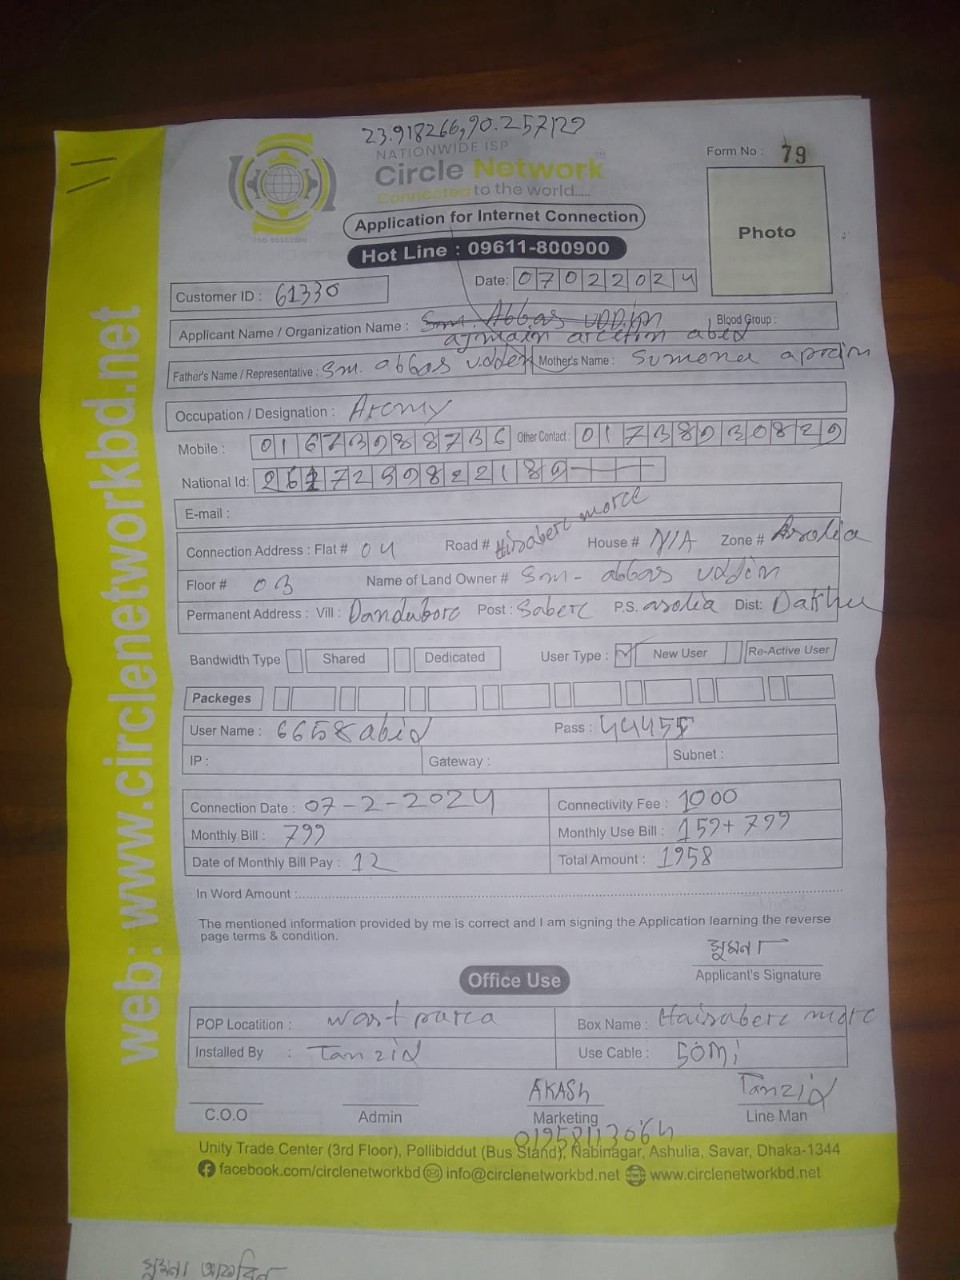 23.918266,90.257129
NATIONWIDE ISP
Circle Network
Connected to the world.....
Form No : 79
Photo
Application for Internet Connection
Hot Line : 09611-800900
Customer ID : 61330
Date: 07022024
Applicant Name / Organization Name : Sm. Abbas uddin Blood Group :
abid
Father's Name / Representative : Sm. abbas udden Mother's Name : Sumona
Occupation / Designation : Army
Mobile : 01673988736 Other Contact : 01738930829
National Id:
E-mail :
Connection Address : Flat # 04 Road # House # N/A Zone # Asolia
Floor # 03 Name of Land Owner # Sm- abbas uddin
Permanent Address : Vill : Post : P.S. asolia Dist:
Bandwidth Type Shared Dedicated User Type : New User Re-Active User
Packeges
User Name : 6658abid Pass : 44455
IP : Gateway : Subnet :
Connection Date : 07-2-2024 Connectivity Fee : 1000
Monthly Bill : 799 Monthly Use Bill : 159+799
Date of Monthly Bill Pay : 12 Total Amount : 1958
In Word Amount :
The mentioned information provided by me is correct and I am signing the Application learning the reverse
page terms & condition.
সুমনা
Applicant's Signature
Office Use
POP Locatition : Box Name :
Installed By : Tanzid Use Cable : 50Mi
AKASH Tanzid
C.O.O Admin Marketing Line Man
Unity Trade Center (3rd Floor), Pollibiddut (Bus Stand), Nabinagar, Ashulia, Savar, Dhaka-1344
facebook.com/circlenetworkbd info@circlenetworkbd.net www.circlenetworkbd.net
web: www.circlenetworkbd.net
সুমনা